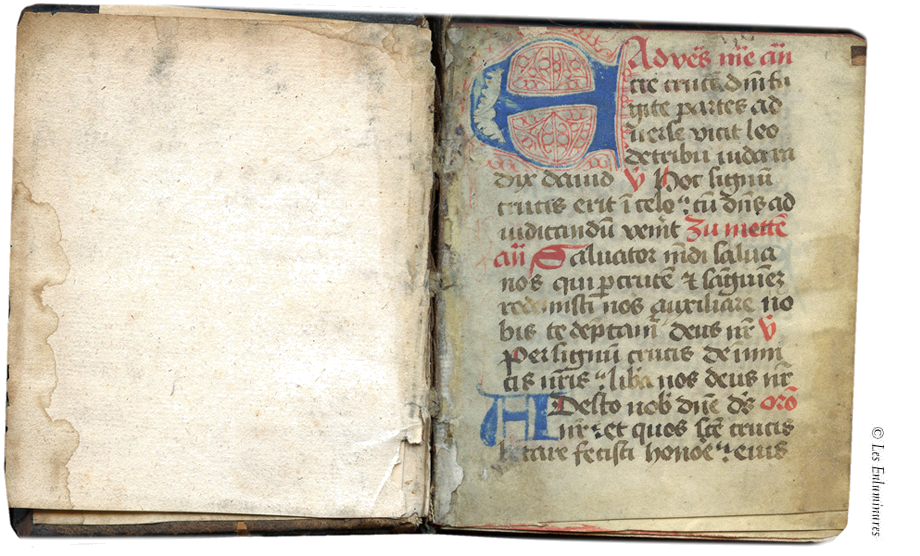 Ad ves mie an
Ecce crucē dnm fu
gite partes ad
uerse vicit leo
de tribu iuda ra
dix dauid v̄ Hoc signū
crucis erit ī celo : cū dn̄s ad
iudicandū venīt Zu metten
an̄ Saluator mūdi salua
nos qui p crucē ⁊ sanguinē
redemisti nos auxiliare no
bis te dep̄cam̄ deus nr̄ v̄
Per signū crucis de inimi
cis nr̄is : liba nos deus nr̄
Adesto nob̄ dn̄e ds̄ orō
nr̄ : et quos scē crucis
letare fecisti honoē : eius
© Les Enluminures